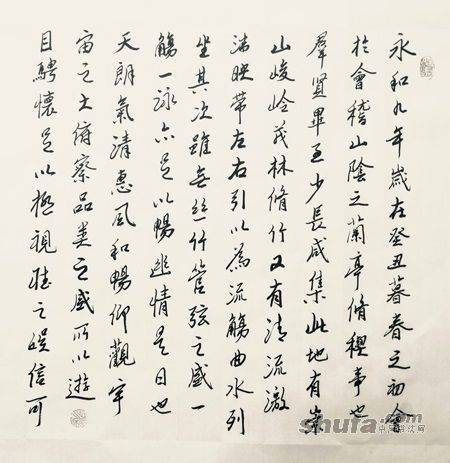 永和九年歲在癸丑暮春之初會
於會稽山陰之蘭亭脩稧事也
羣賢畢至少長咸集此地有崇
山峻岭茂林脩竹又有清流激
湍映带左右引以為流觴曲水列
坐其次雖無丝竹管弦之盛一
觴一詠亦足以暢幽情是日也
天朗氣清惠風和暢仰觀宇
宙之大俯察品类之盛所以遊
目騁懷足以極視聽之娱信可
shufa.com